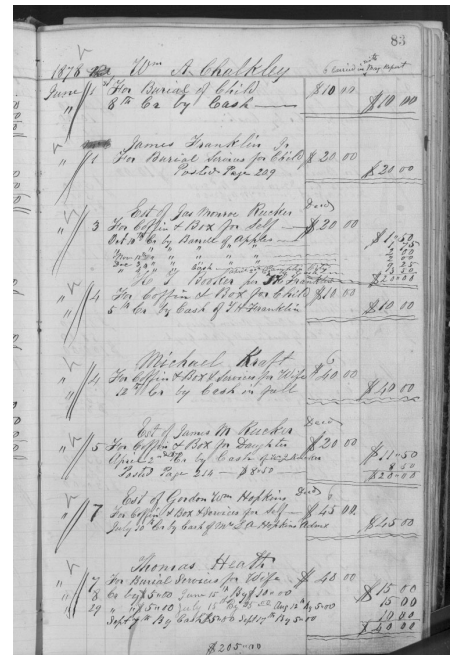 83
1878 Wm A Chalkley 6 carried in Rept
June 1st For Burial of Child $10 00
" 8th Cr by Cash $10 00
James Franklin Jr
" 1 For Burial Services for Child $20.00
Posted Page 229 $20.00
Est of Jas Monroe Rucker Decd
" 3 For Coffin & Box for Self $20.00
Oct 10th Cr by Barrel of Apples $1.50
$20.00
H Booker for Franklin
" 4 For Coffin & Box for Child $10 00
5th Cr by Cash of T H Franklin $10 00
Michael Kraft
" 4 For Coffin & Box & Services for Wife $40.00
12th Cr by Cash in full $40.00
Est of James M Rucker Decd
" 5 For Coffin & Box for Daughter $20 00
Cr by Cash $11.50
Posted Page 214 $8.50 8 50
$20.00
Est of Gordon Wm Hopkins Decd
" 7 For Coffin & Box & Services for Self $45.00
July 10th Cr by Cash of Mrs Hopkins $45.00
Thomas Heath
" 7 For Burial Services for Wife $40 00
" 8 Cr by $5.00 June 15th By $10.00 $15 00
29 " " $5.00 July 15th By Aug 12th By 5.00 15 00
Sept 7th By Cash $5.00 Sept 17th By 5.00 10.00
$40 00
$205.00